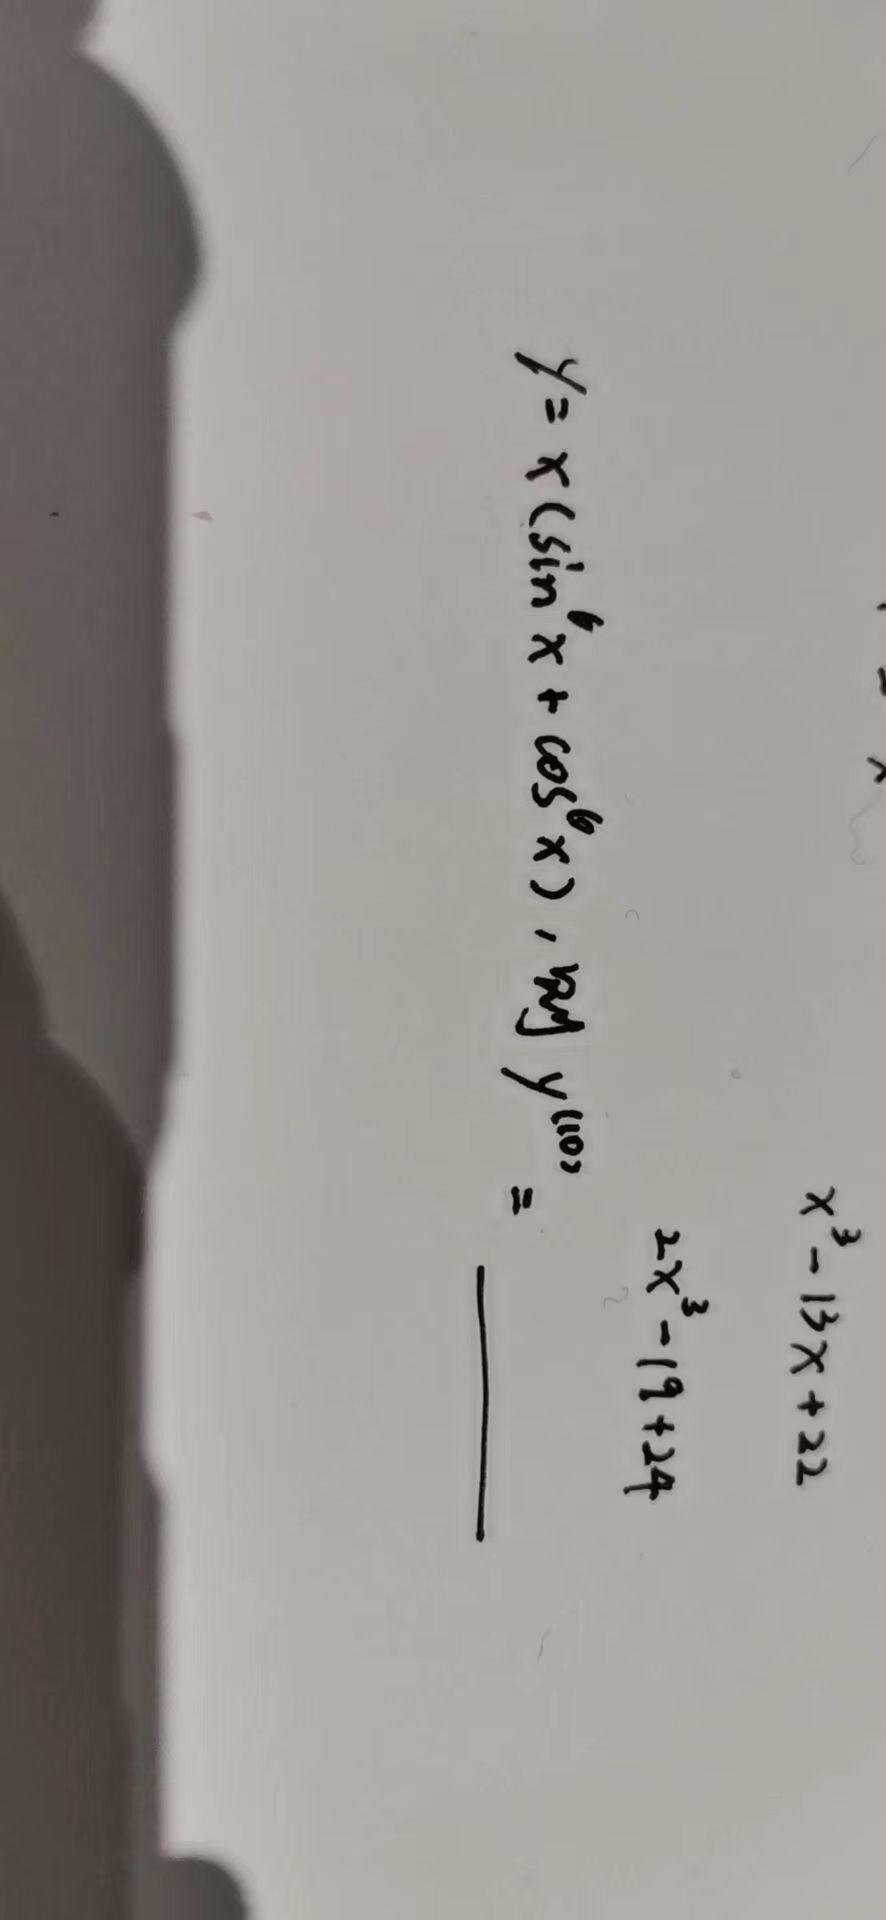 x³-13x+22
2x³-19+24
y=x(sin⁶x+cos⁶x),则y⁽¹⁰⁾=____